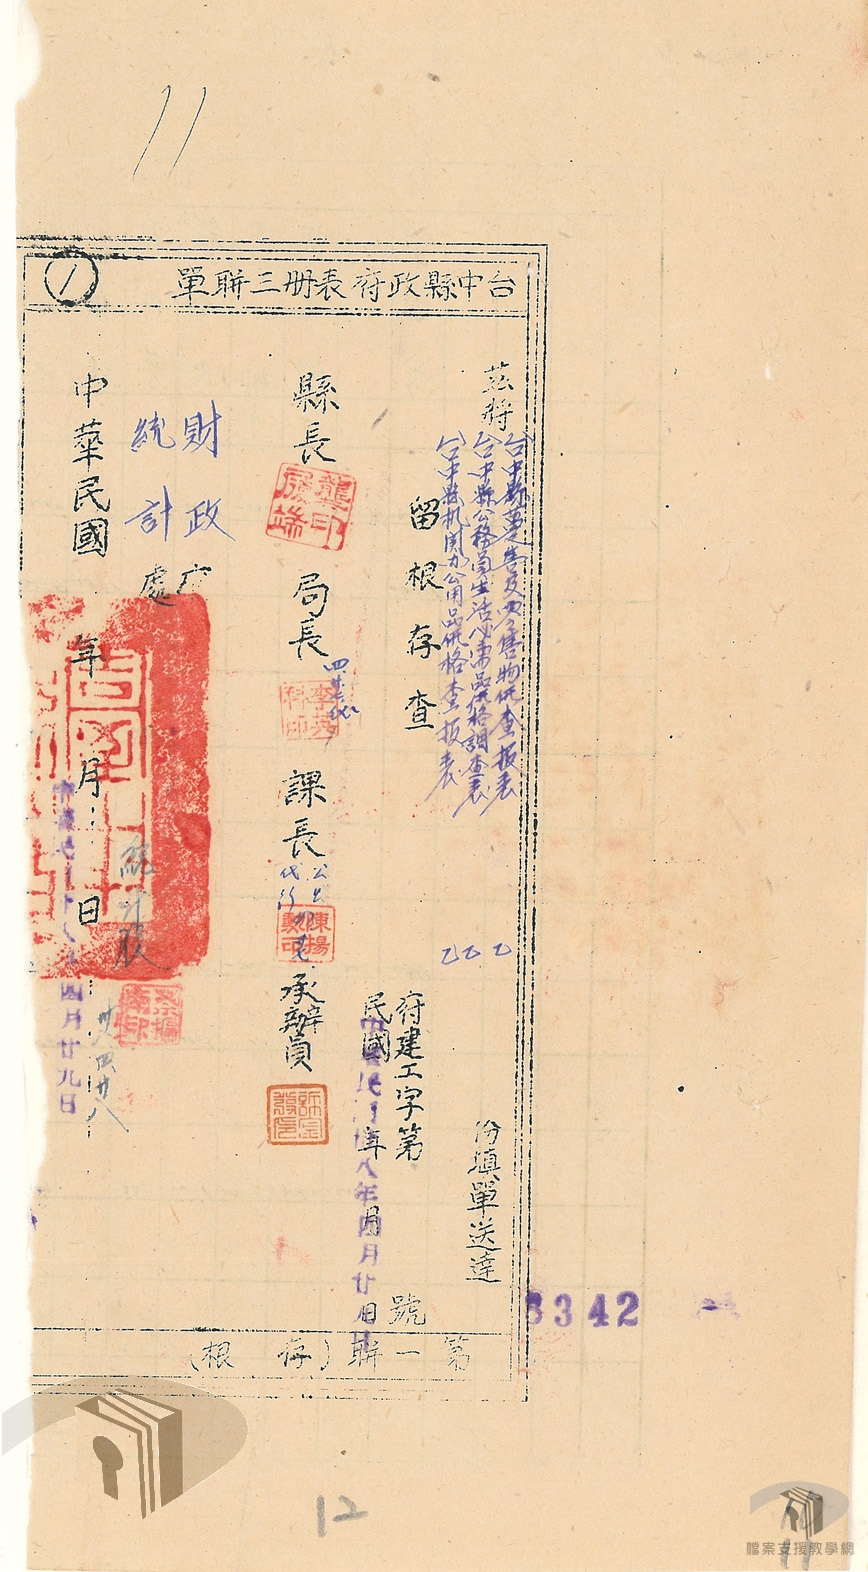 11
台中縣政府表冊三聯單
1
茲將
台中縣躉售及零售物價查報表
台中縣公務員生活必需品價格調查表
台中縣机関办公用品價格查报表
乙
乙
乙
份填單送達
留根存查
府建工字第
號
3342
民國 年 月 日
中華民國卅八年四月廿 日
縣長
龔履端印
局長
課長
公出
代行
陳揚
承辦員
財政
廳
統計
處
中華民國 年 月 日
統計股
四月廿九日
第一聯(存根)
12
11
檔案支援教學網